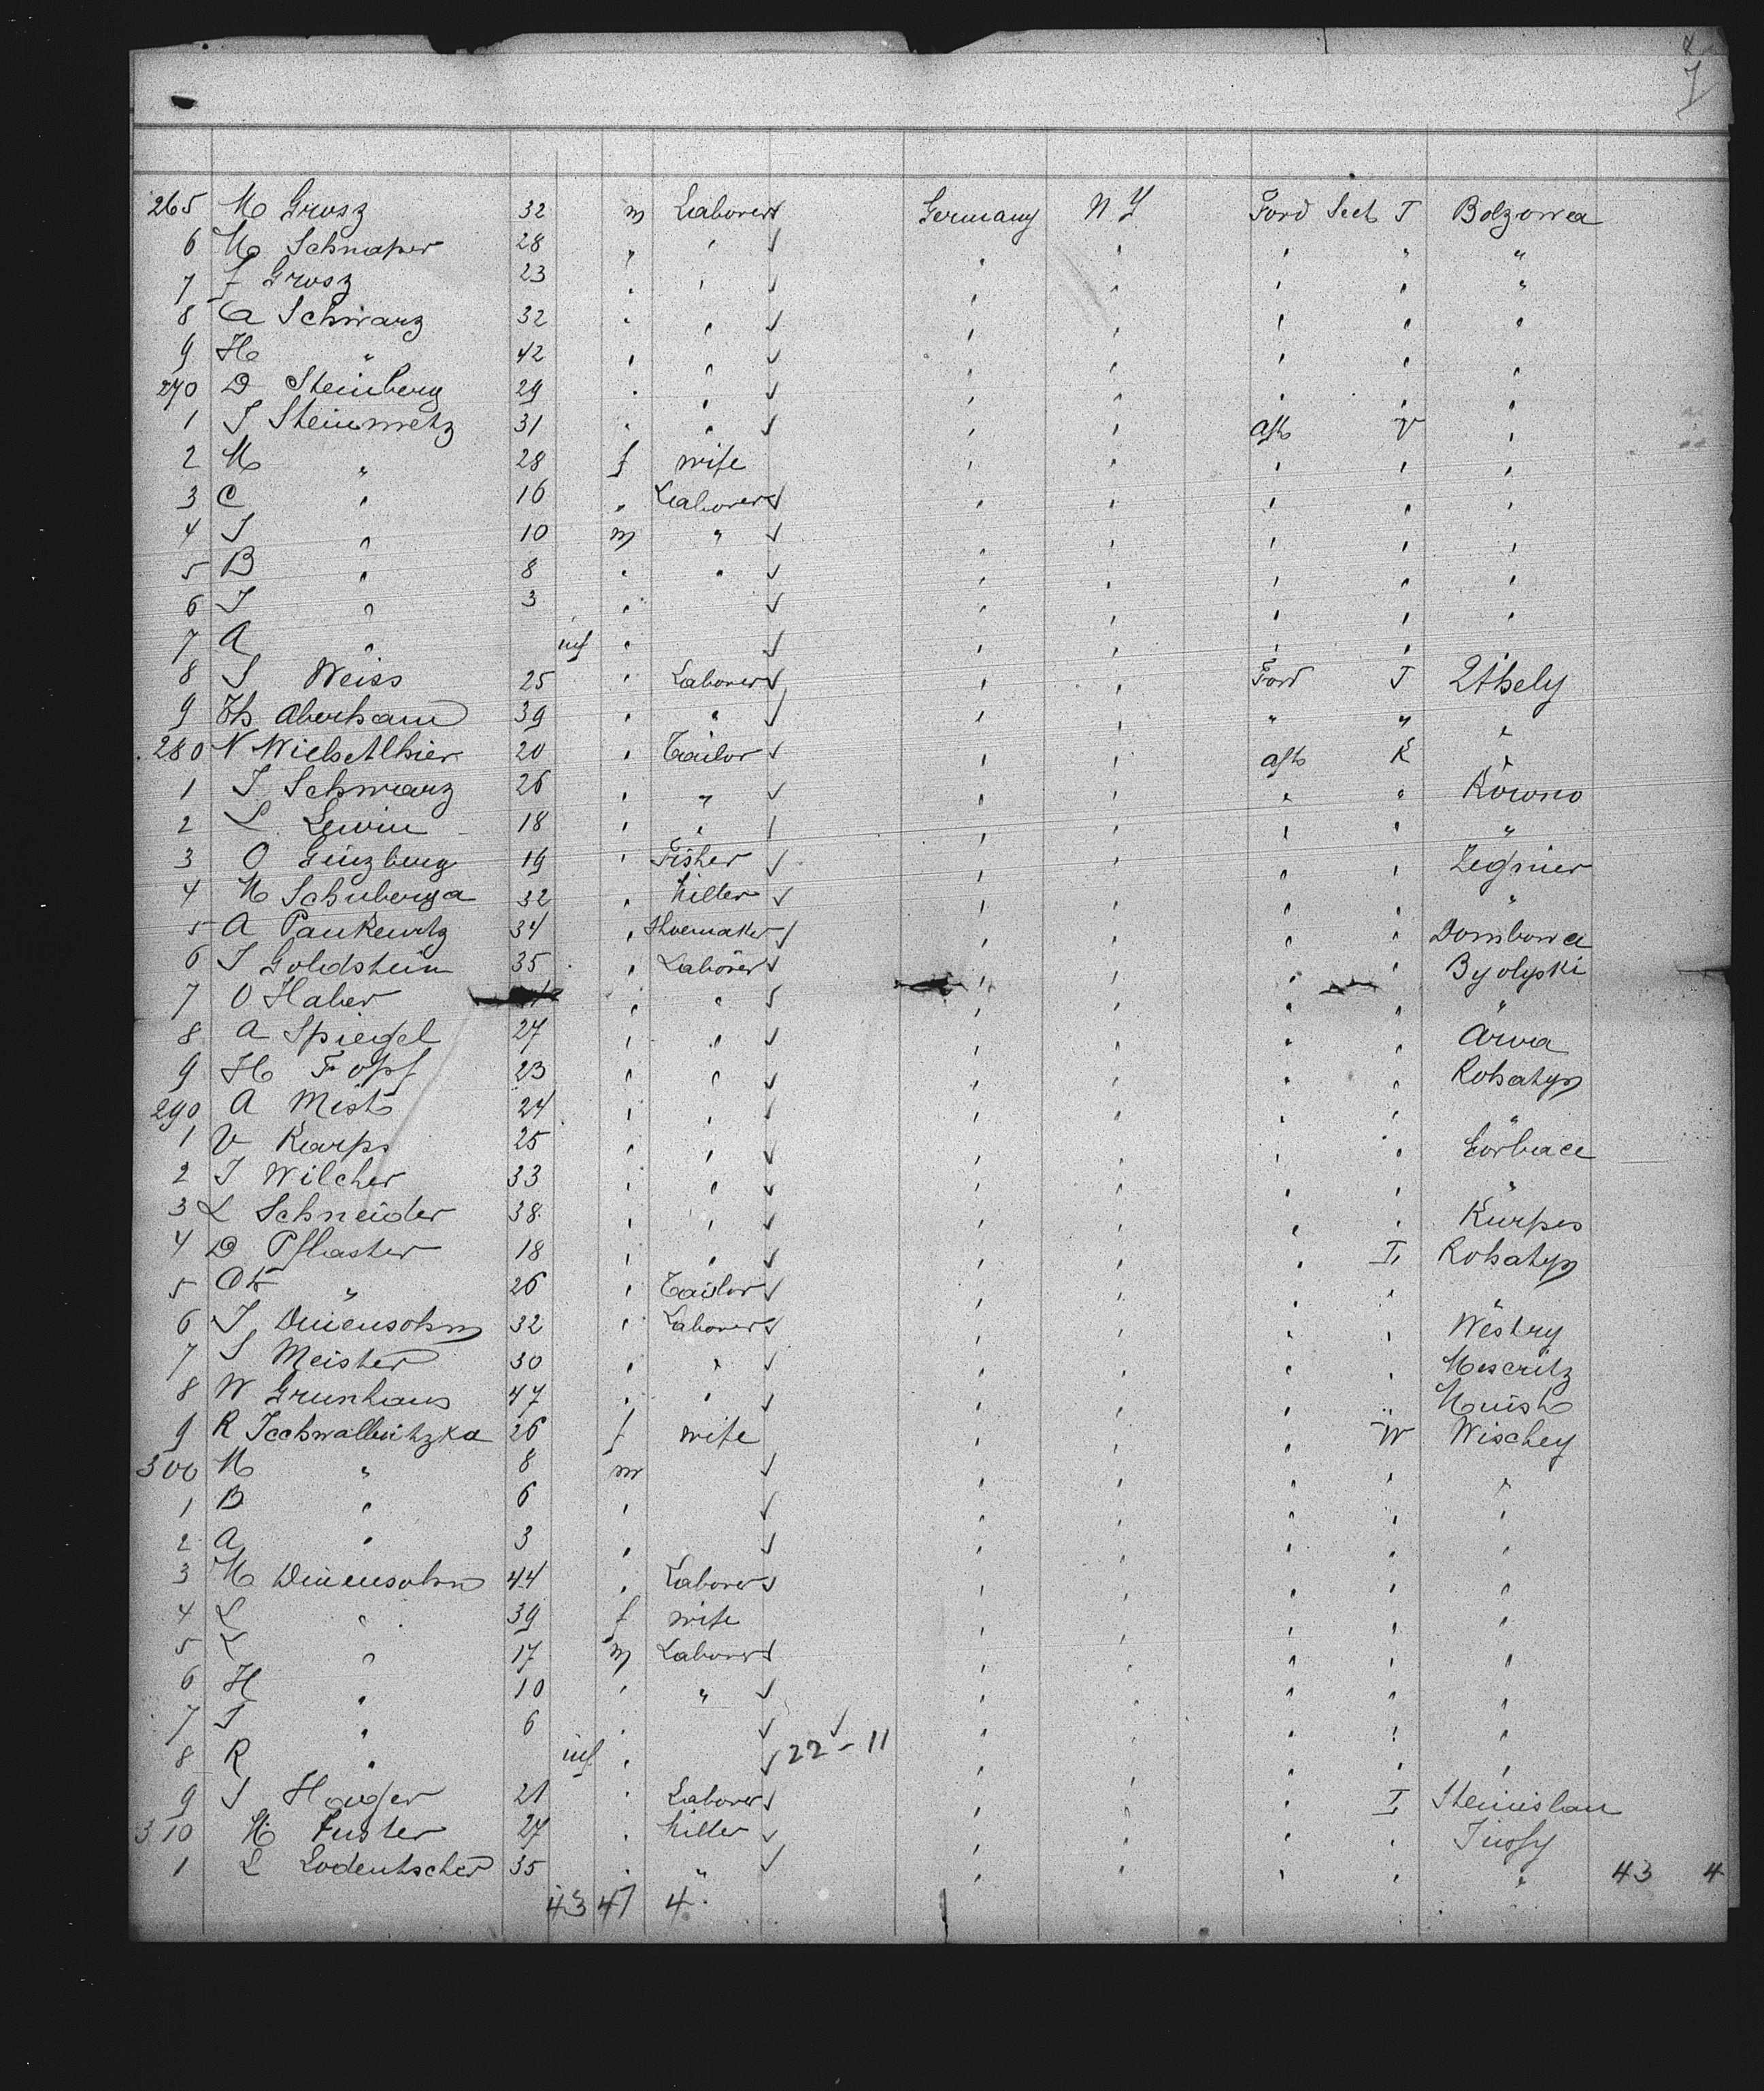 7
265 M Grosz 32 m Laborer Germany N Y Ford Sect T Bolzowea
6 M Schnaper 28 " " " " " " "
7 J Grosz 23 " " " " " " "
8 A Schwarz 32 " " " " " " "
9 H " 42 " " " " " " "
270 D Steinberg 29 " " " " " " "
1 J Steinmetz 31 " " " " aft V "
2 M " 28 f wife " " " " "
3 C " 16 " Laborer " " " " "
4 J " 10 m " " " " " "
5 B " 8 " " " " " " "
6 J " 3 " " " " " "
7 A " inf " " " " " "
8 S Weiss 25 " Laborer " " Ford T
9 Th Aberham 39 " " " " " " "
280 N 20 " Tailor " " aft K "
1 J Schwarz 26 " " " " " " Kowno
2 L Lewin 18 " " " " " " "
3 O Ginzberg 19 " Fisher " " " "
4 M Schuberga 32 " Miller " " " " "
5 A Paukewitz 34 " Shoemaker " " " " Dombowa
6 J Goldstein 35 " Laborer " " " " Byolyski
7 O Haber " " " " " " "
8 A Spiegel 27 " " " " " " Arwa
9 H Topf 23 " " " " " " Rohatyn
290 A Mist 24 " " " " " " "
1 V Karps 25 " " " " " "
2 J Wilcher 33 " " " " " " "
3 L Schneider 38 " " " " " " Kurpes
4 D Pflaster 18 " " " " " I Rohatyn
5 " 26 " Tailor " " " " "
6 J Dinensohn 32 " Laborer " " " " Westry
7 S Meister 30 " " " " " " Mescritz
8 W Grunhaus 47 " " " " " "
9 R 26 f wife " " " W Wischey
300 M " 8 m " " " " "
1 B " 6 " " " " " "
2 A " 3 " " " " " "
3 M Dinensohn 44 " Laborer " " " " "
4 L " 39 f wife " " " " "
5 L " 17 m Laborer " " " " "
6 H " 10 " " " " " " "
7 J " 6 " " " " " "
8 R " inf " 22-11 " " " " "
9 S Hauger 21 " Laborer " " " I Stenislau
310 M Fuster 27 " Miller " " " "
1 L Lodentscher 35 " " " " " " " 43 4
43 47 4